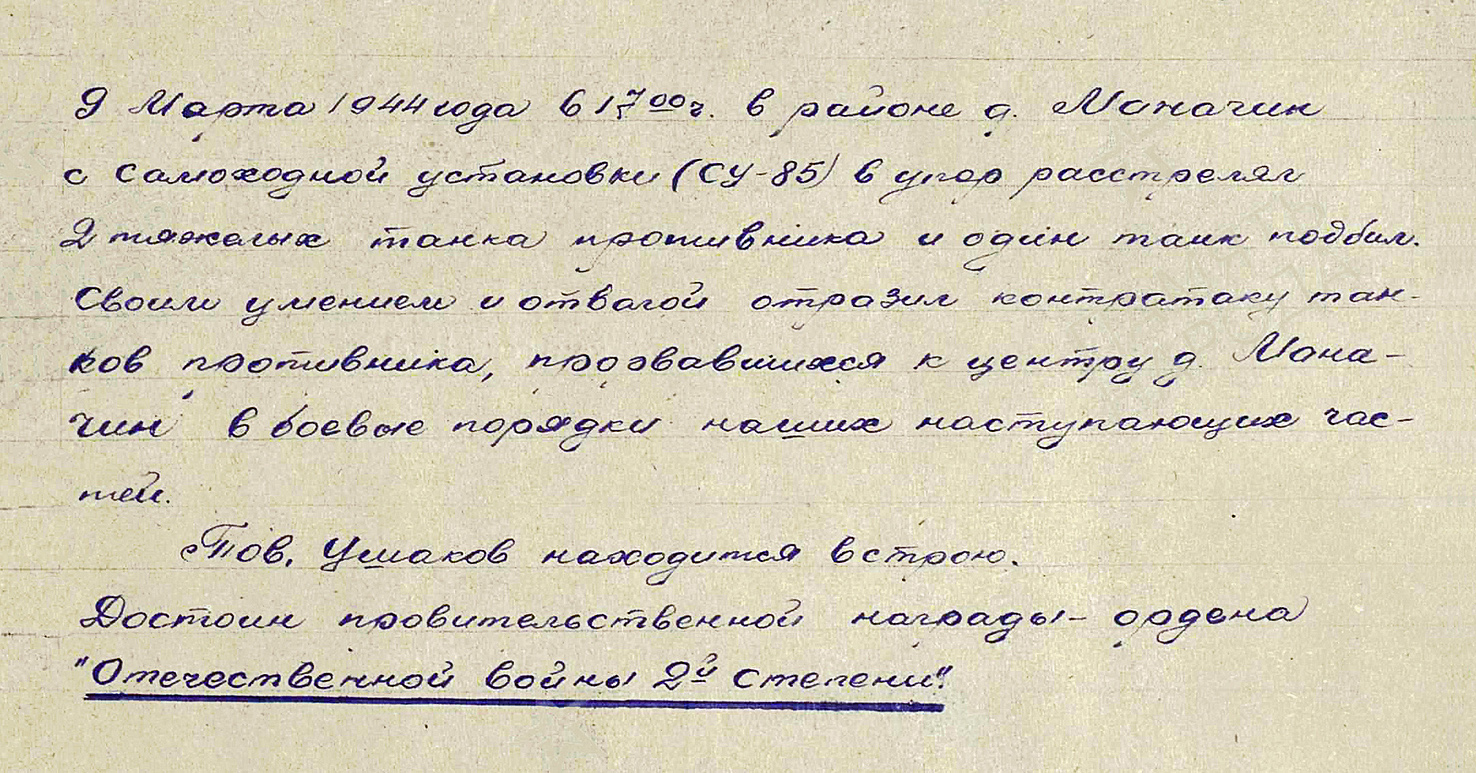 9 Марта 1944 года в 17 00 ч. в районе д. Моначин
с самоходной установки (СУ-85) в упор расстрелял
2 тяжелых танка противника и один танк подбил.
Своим умением и отвагой отразил контратаку тан-
ков противника, прорвавшихся к центру д. Мона-
чин в боевые порядки наших наступающих час-
тей.
Тов. Ушаков находится в строю.
Достоин провительственной награды - ордена
"Отечественной войны 2й степени".